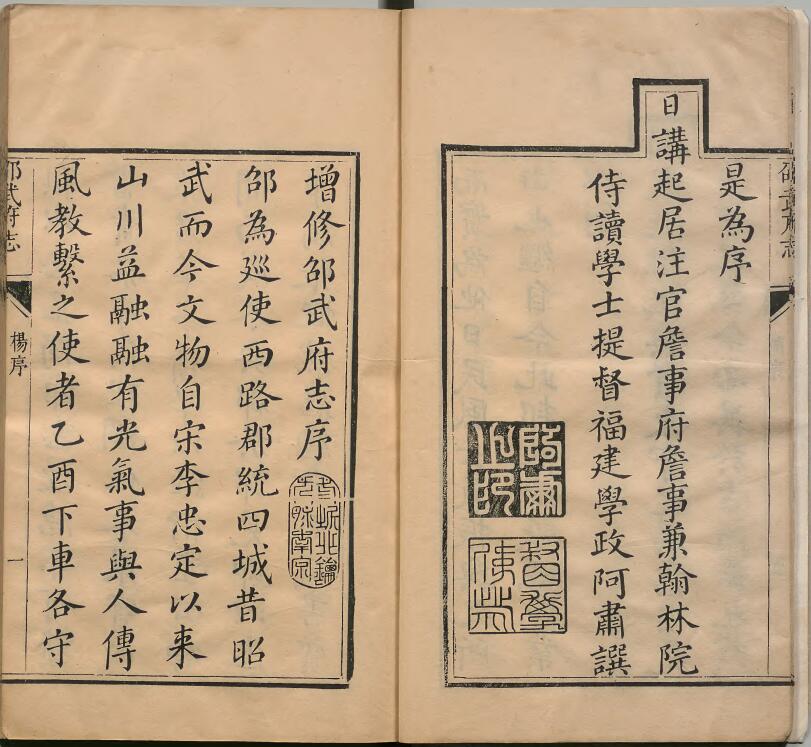 是為序
日講起居注官詹事府詹事兼翰林院
侍讀學士提督福建學政阿肅譔
阿肅之印
增修邵武府志序
邵為廵使西路郡統四城昔昭
武而今文物自宋李忠定以来
山川益融融有光氣事與人傳
風教繫之使者乙酉下車各守
邵武府志
楊序
一